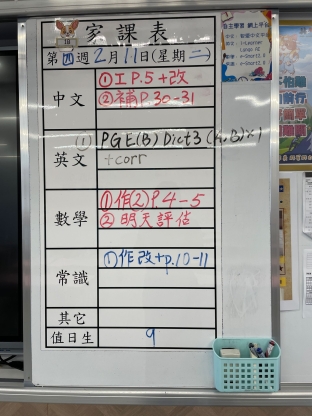 家課表
第四週2月11日(星期二)
中文
①工P.5+改
②補P.30-31
英文
① PGE(B) Dict3 (A,B)×1
+corr
數學
①作(2)P4-5
②明天評估
常識
①作改+p.10-11
其它
值日生
9
自主學習 網上平台